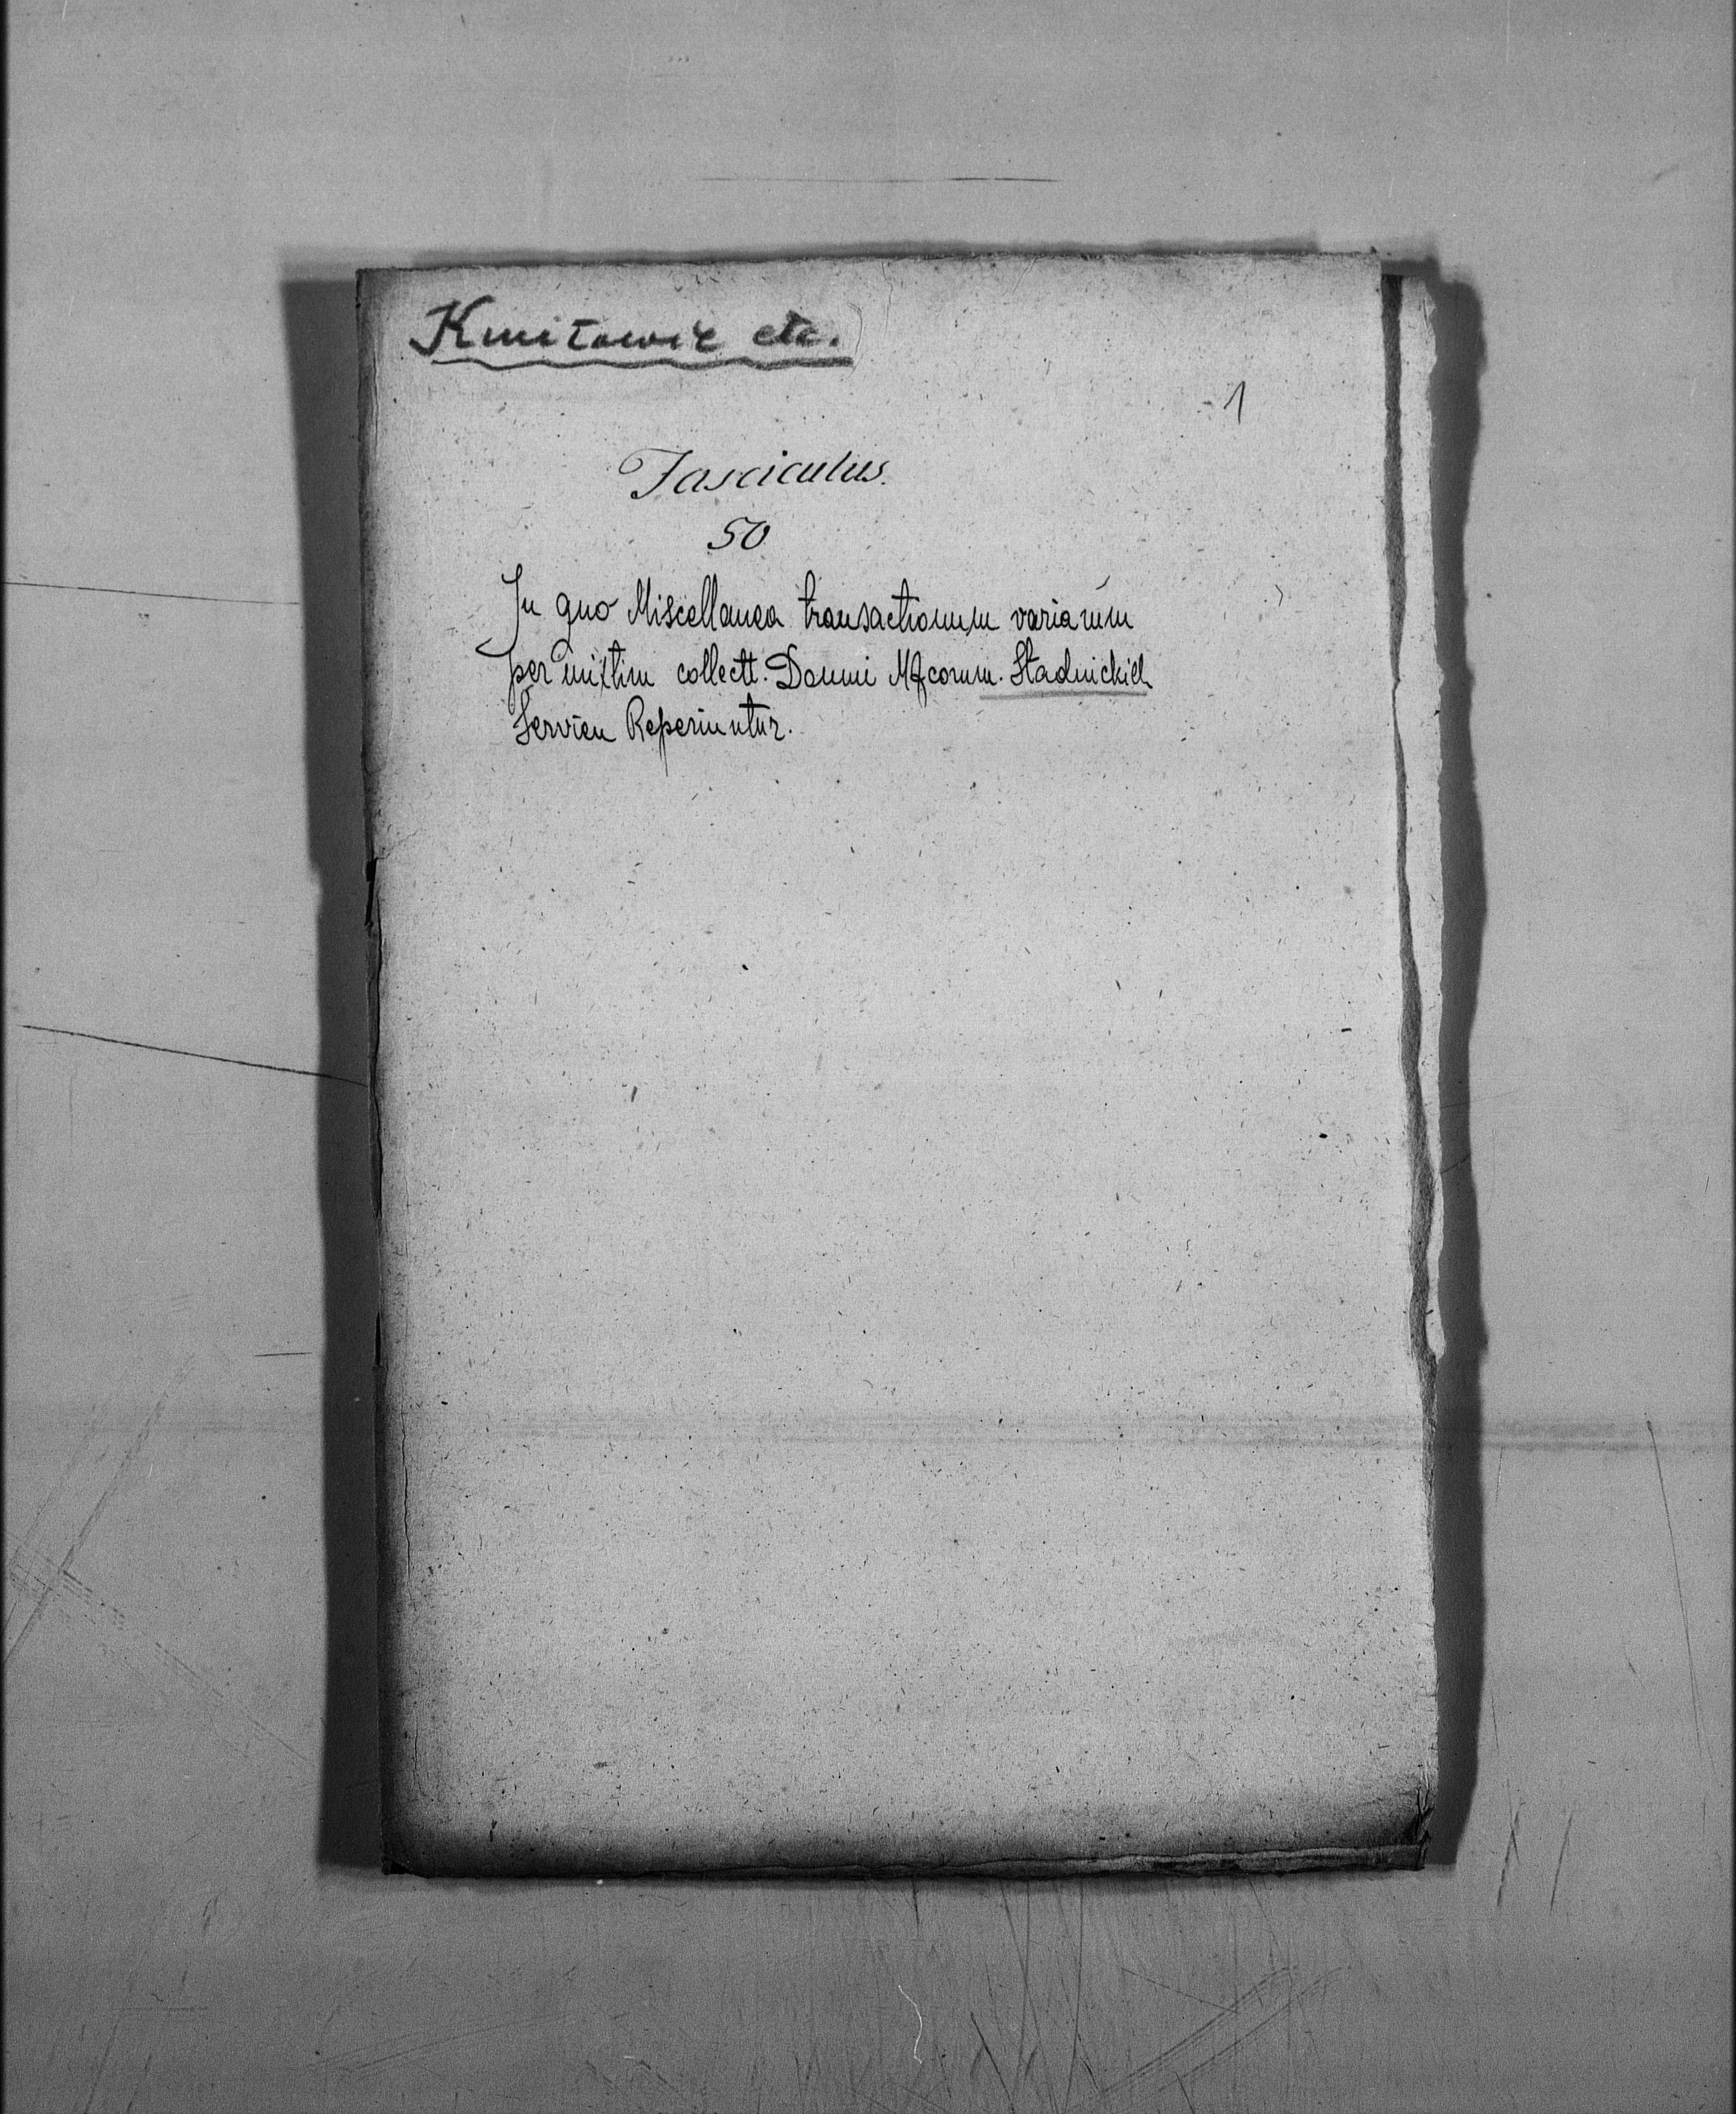 Kmitowie etc.
1
Fasciculus.
50
In quo Miscellanea transactionum variarum
per mixtim collectt. Domui Mfcorum. Stadnickich
Servien Reperiuntur.